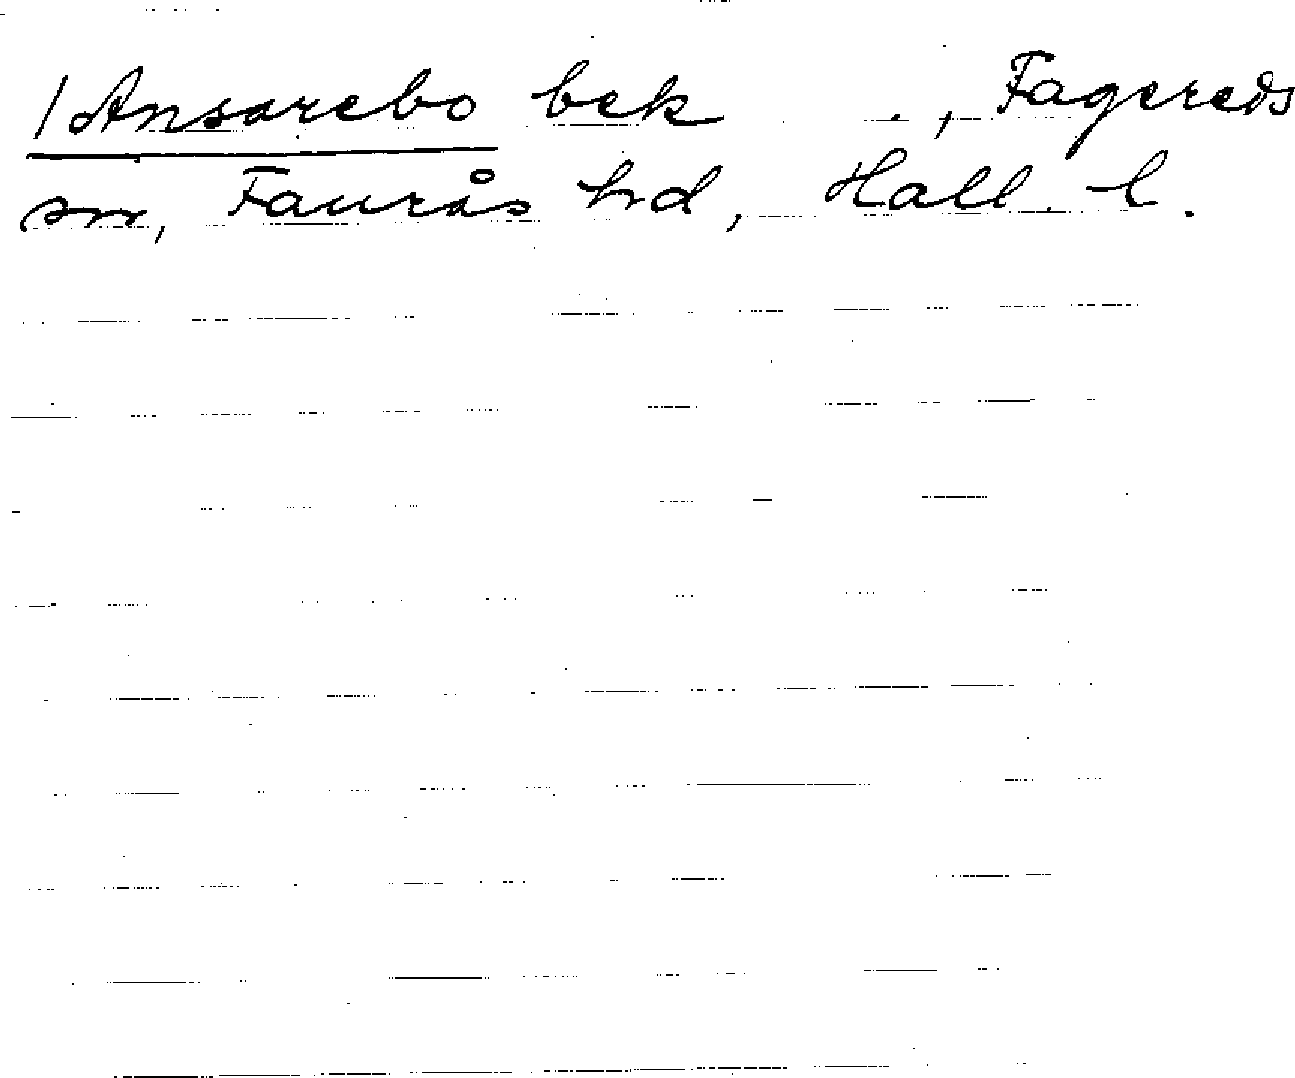 / Ansarebo bek , Fagereds
sn, Faurås hd, Hall. l.